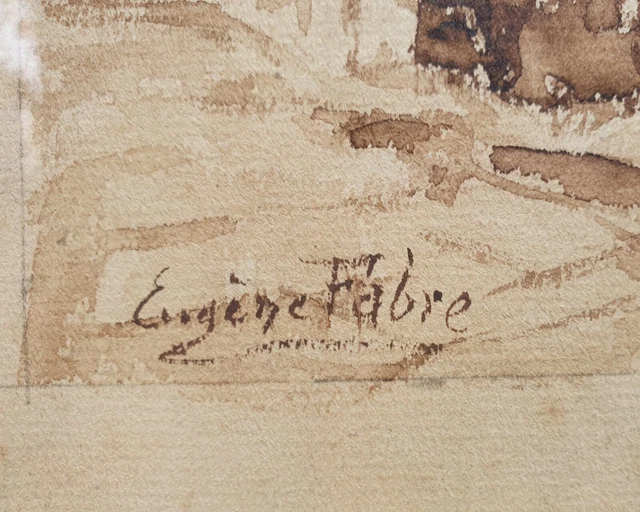 Eugène Fabre